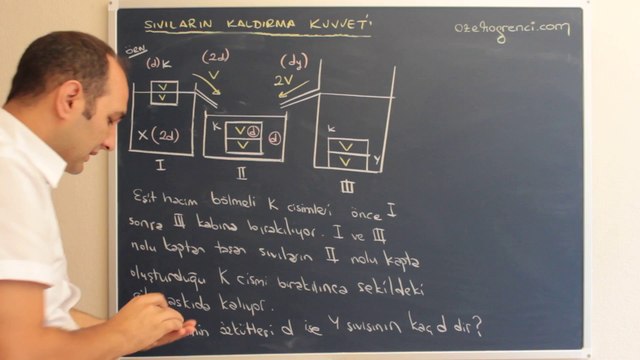 SIVILARIN KALDIRMA KUVVETİ
ozelogrenci.com
ÖRN
(d) K
(2d)
V
(dy)
2V
V
V
X (2d)
I
K
V (d)
V
(d)
II
K
V
V
Y
III
Eşit hacim bölmeli K cisimleri önce I
sonra III kabına bırakılıyor. I ve III
nolu kaptan taşan sıvıların II nolu kapta
oluşturduğu K cismi bırakılınca şekildeki
askıda kalıyor.
özkütlesi d ise Y sıvısının kaç d dir?